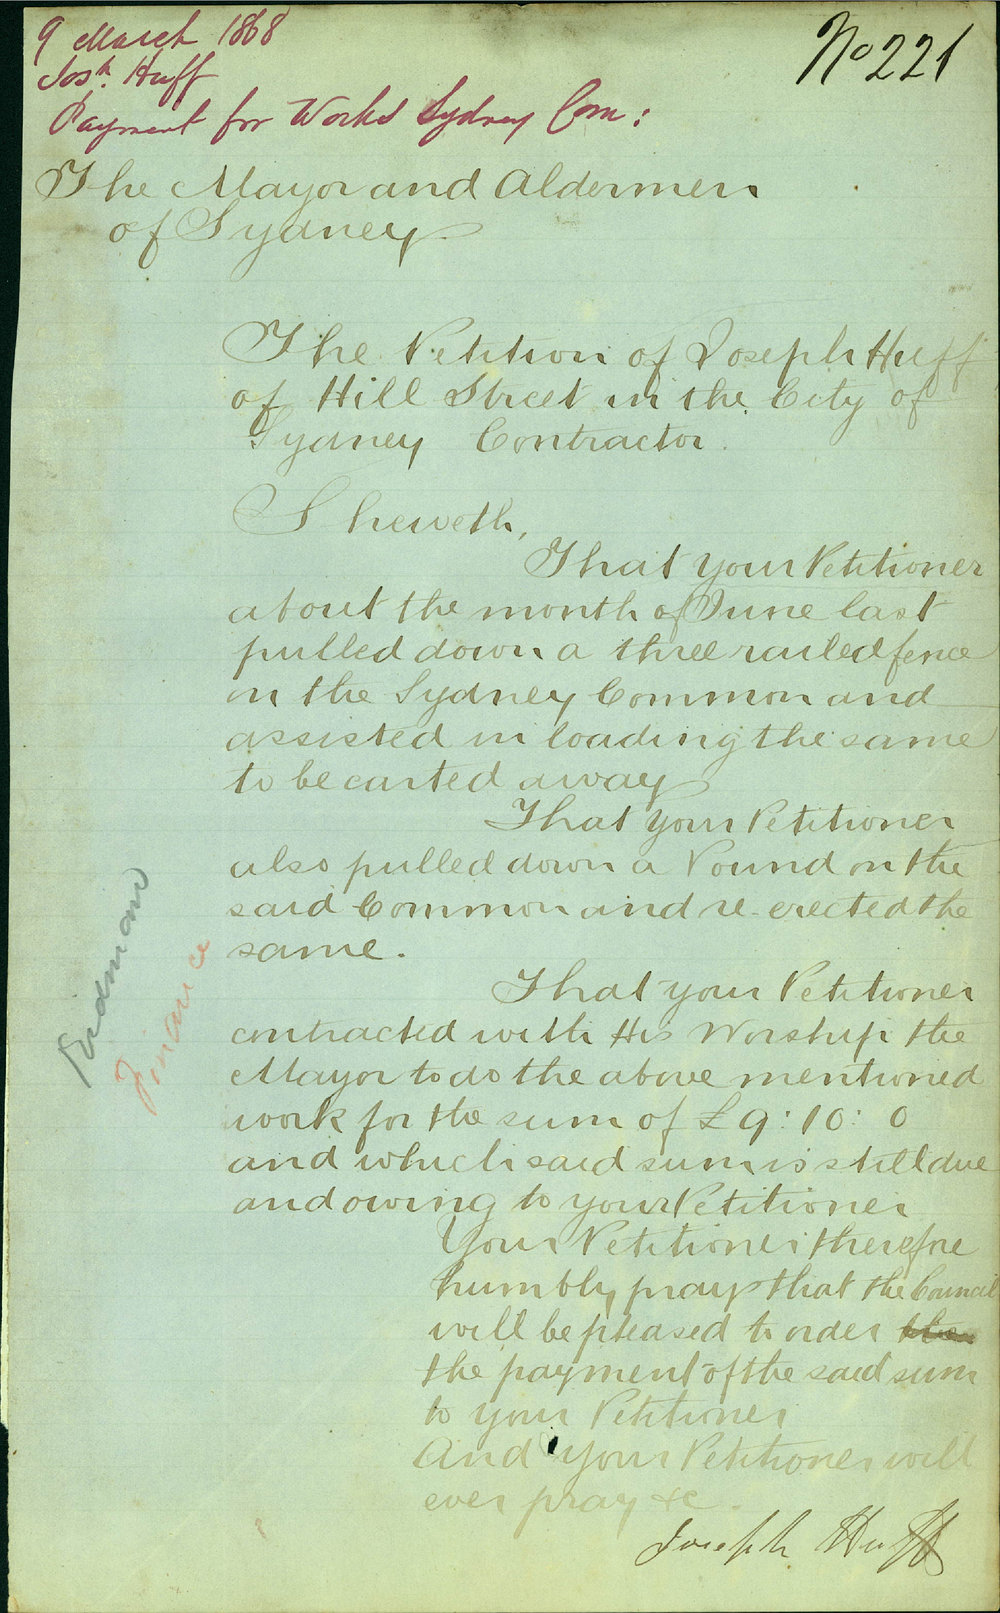 9 March 1868
Josh. Huff
Payment for Works Sydney Com:
No 221
The Mayor and Aldermen
of Sydney.
The Petition of Joseph Huff
of Hill Street in the City of
Sydney Contractor.
Sheweth,
That your Petitioner
about the month of June last
pulled down a three railed fence
on the Sydney Common and
assisted in loading the same
to be carted away
That your Petitioner
also pulled down a Pound on the
said Common and re-erected the
same.
That your Petitioner
contracted with His Worship the
Mayor to do the above mentioned
work for the sum of £9:10:0
and which said sum is still due
and owing to your Petitioner
Your Petitioner therefore
humbly prays that the Council
will be pleased to order
the payment of the said sum
to your Petitioner
And your Petitioner will
ever pray &c.
Joseph Huff
Finance